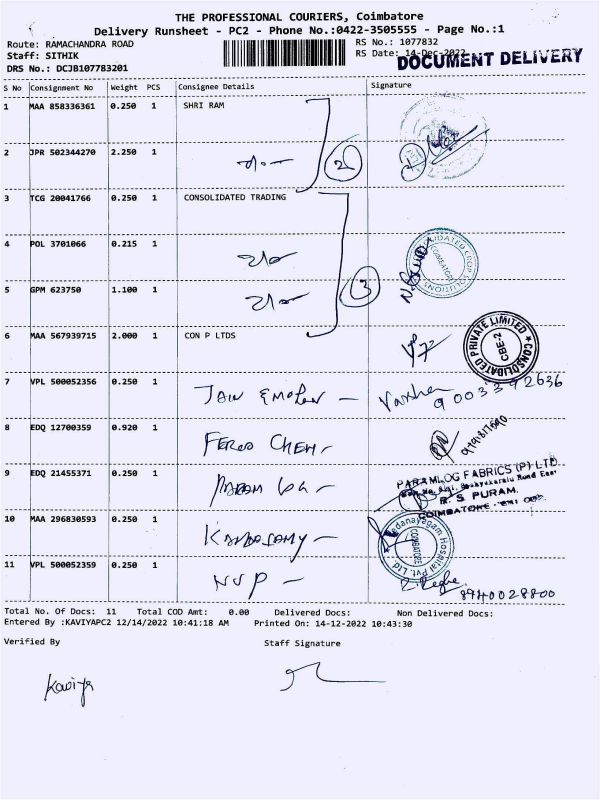 THE PROFESSIONAL COURIERS, Coimbatore
Delivery Runsheet - PC2 - Phone No.:0422-3505555 - Page No.:1
Route: RAMACHANDRA ROAD RS No.: 1077832
Staff: SITHIK RS Date: 14-Dec-2022
DOCUMENT DELIVERY
DRS No.: DCJB107783201
S No Consignment No Weight PCS Consignee Details Signature
1 MAA 858336361 0.250 1 SHRI RAM
2 JPR 502344270 2.250 1
2
3 TCG 20041766 0.250 1 CONSOLIDATED TRADING
4 POL 3701066 0.215 1
COIMBATORE
5 GPM 623750 1.100 1
3
6 MAA 567939715 2.000 1 CON P LTDS
CONSOLIDATED PRIVATE LIMITED CBE-2
7 VPL 500052356 0.250 1 Varsha 9003392636
8 EDQ 12700359 0.920 1
9 EDQ 21455371 0.250 1
PARAMLOG FABRICS (P) LTD
R. S PURAM.
10 MAA 296830593 0.250 1 KANDASAMY
COIMBATORE
Hospital Pvt. Ltd
11 VPL 500052359 0.250 1 NVP 8940028800
Total No. Of Docs: 11 Total COD Amt: 0.00 Delivered Docs: Non Delivered Docs:
Entered By :KAVIYAPC2 12/14/2022 10:41:18 AM Printed On: 14-12-2022 10:43:30
Verified By Staff Signature
Kaviya